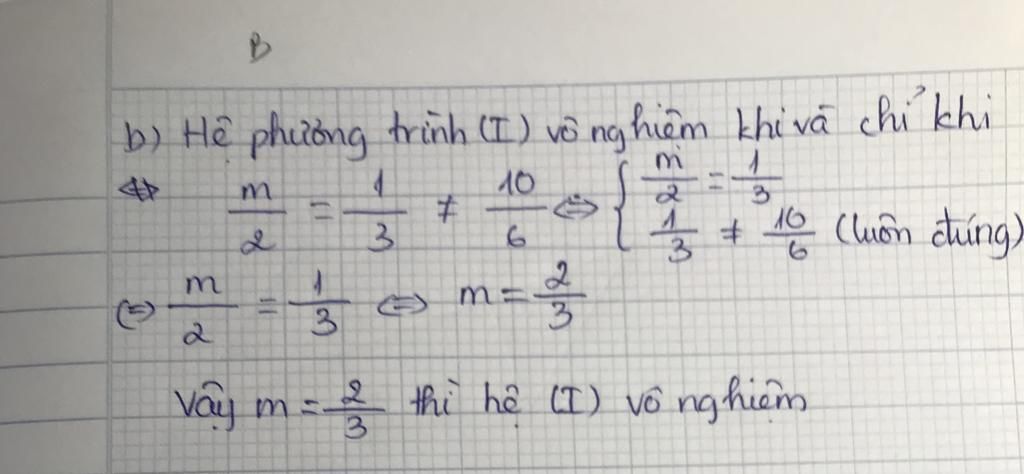 B
b) Hệ phương trình (I) vô nghiệm khi và chỉ khi
⇔ m/2 = 1/3 ≠ 10/6 ⇔ { m/2 = 1/3
1/3 ≠ 10/6 (luôn đúng)
⇔ m/2 = 1/3 ⇔ m = 2/3
Vậy m = 2/3 thì hệ (I) vô nghiệm